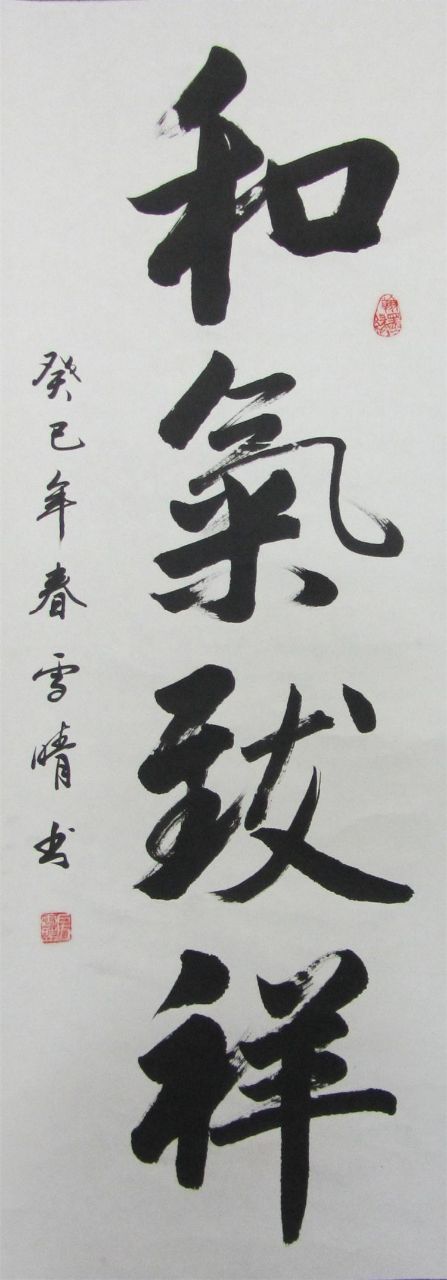 和氣致祥
癸巳年春雪晴书